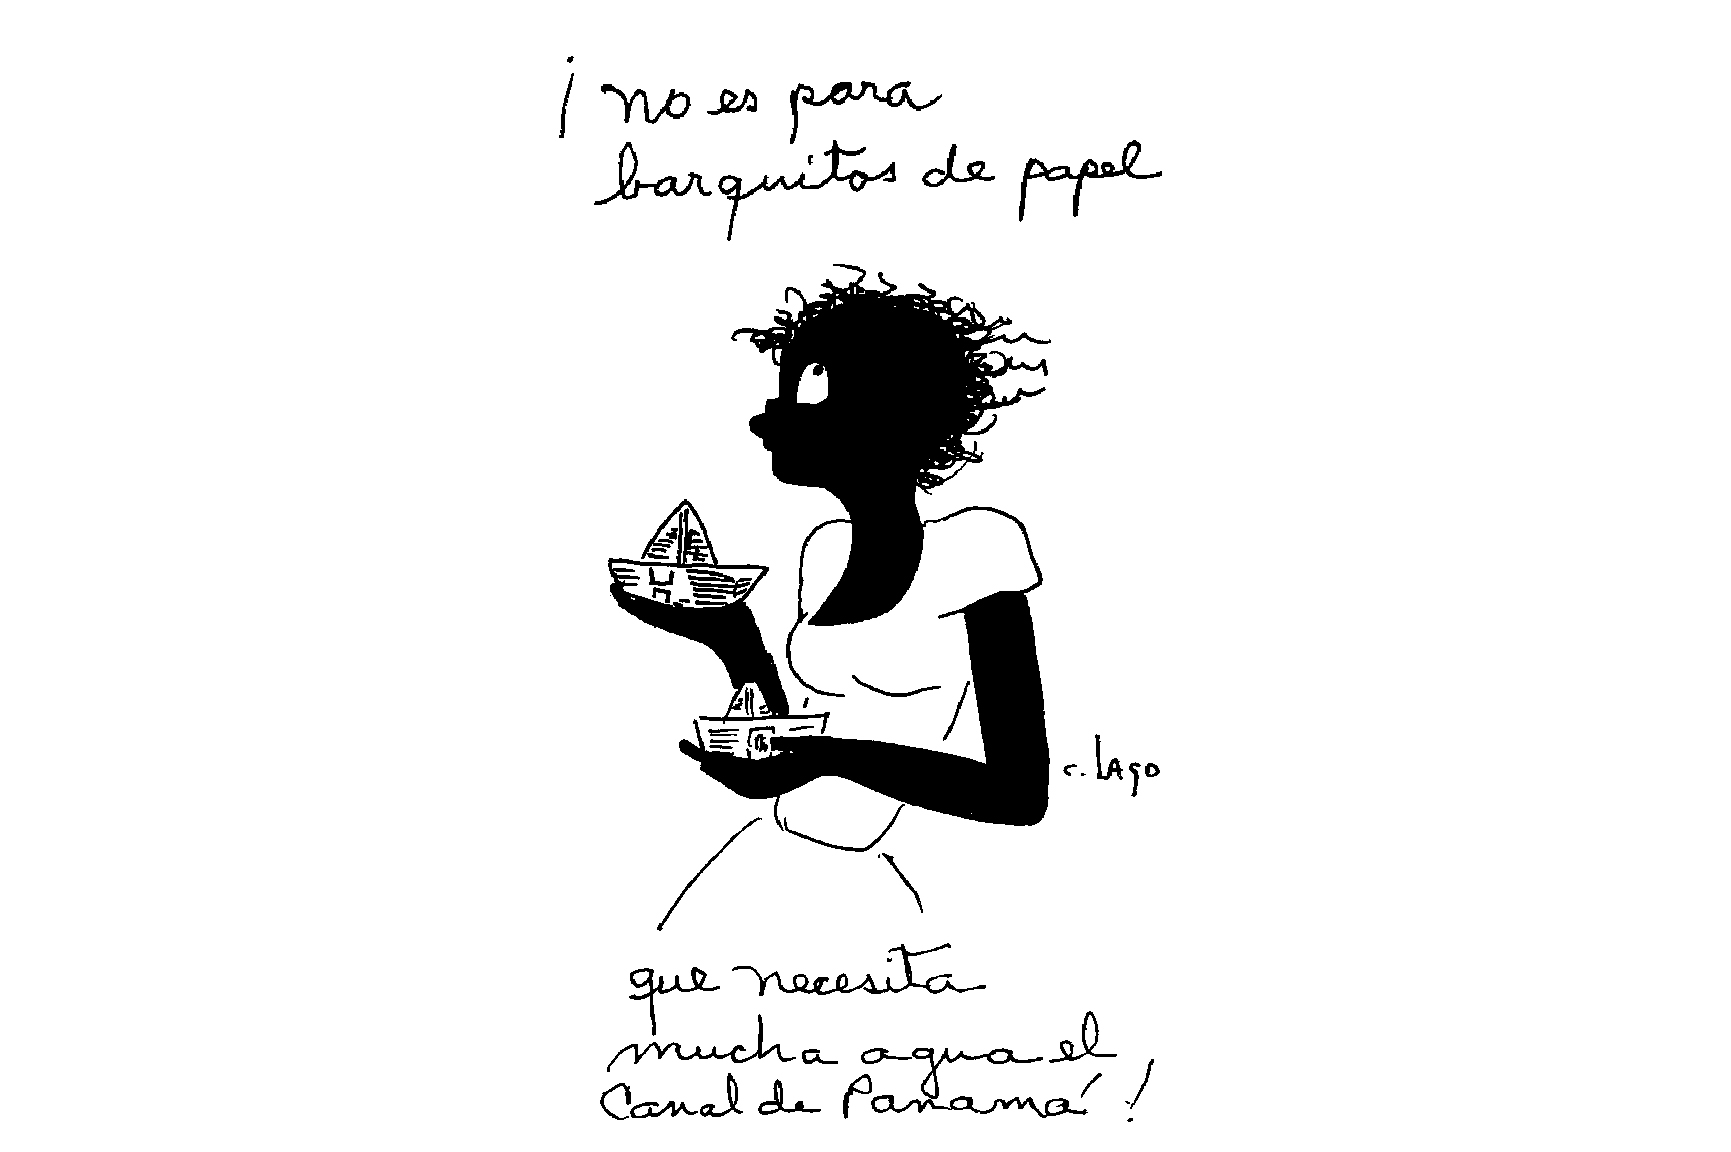 ¡no es para
barquitos de papel
c. Lago
que necesita
mucha agua el
Canal de Panamá!